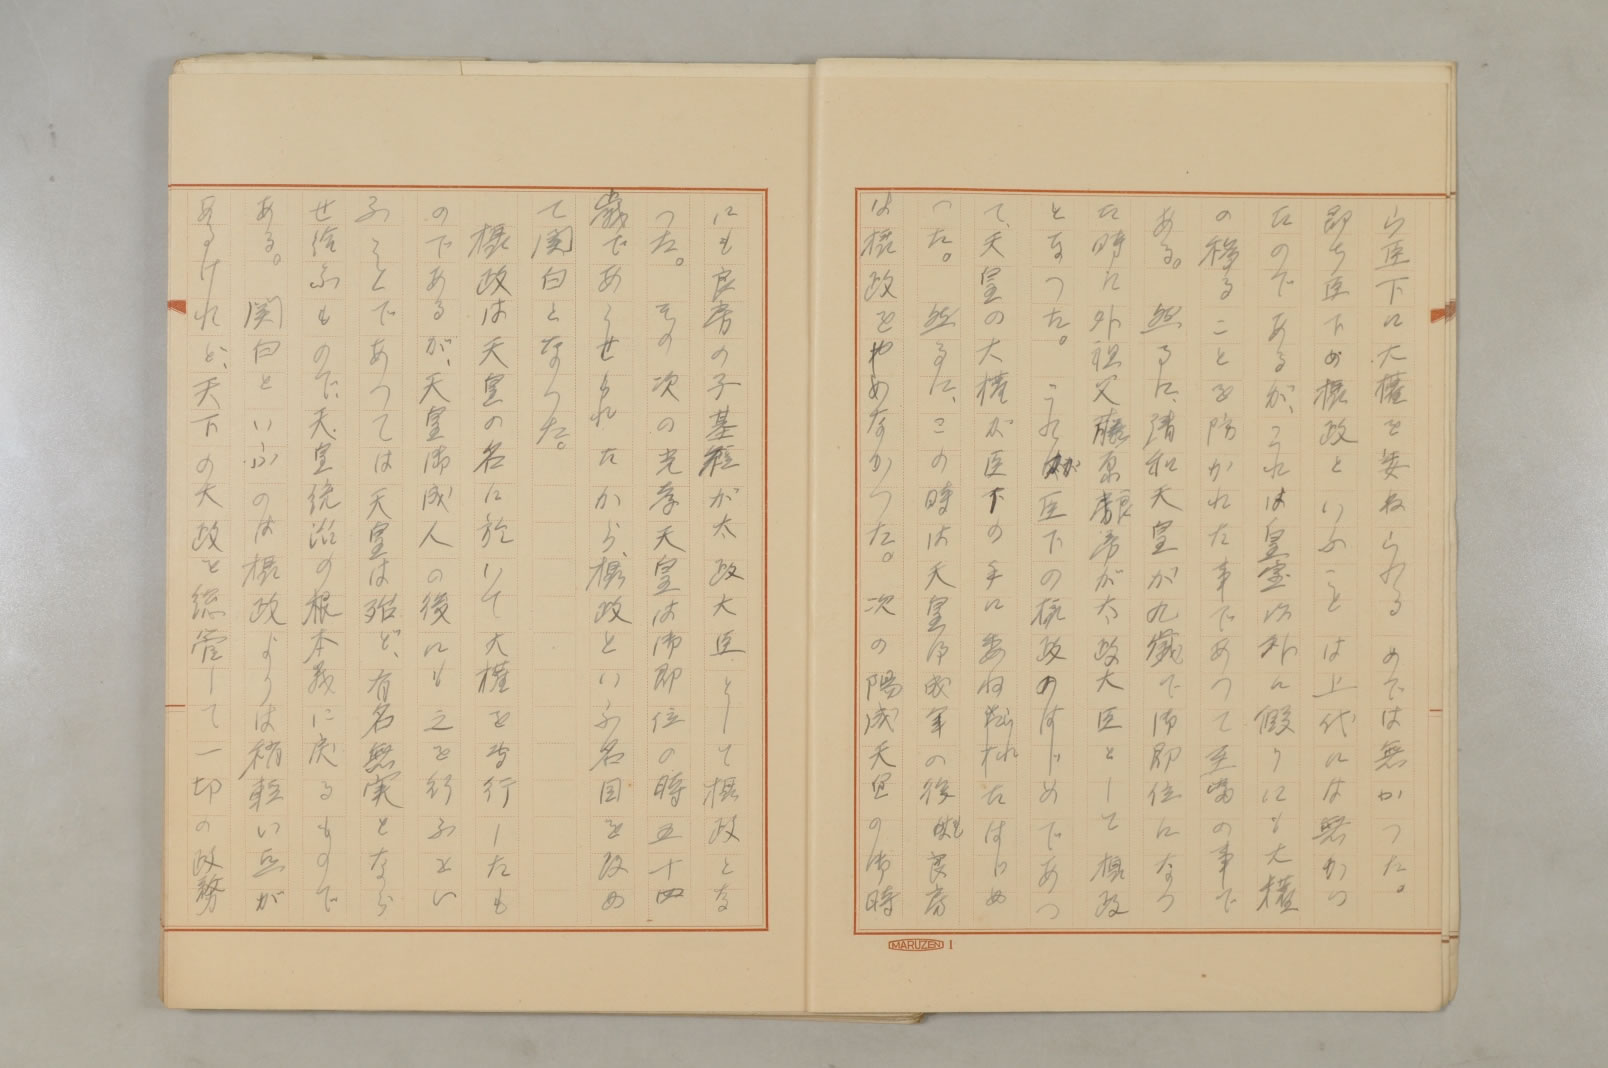 ら臣下に大權を委ねらるゝ めでは無かつた。
即ち臣下が摂政といふことは上代には無かつ
たのであるが、これは皇霊以外に假りにも大權
の移ることを防がれた事であつて至當の事で
ある。 然るに、清和天皇が九歳で御即位になつ
た時に外祖父藤原良房が太政大臣として摂政
となつた。 これが臣下の摂政のはじめであつ
て、天皇の大權が臣下の手に委ねられたはじめ
つた。 然るに、この時は天皇御成年の後も良房
は摂政をやめなかつた。次の陽成天皇の御時
MARUZEN 1
にも良房の子基経が太政大臣として摂政とな
つた。 その次の光孝天皇は御即位の時五十四
歳であらせられたから、摂政といふ名目を改め
て関白となつた。
摂政は天皇の名に於いて大權を執行したも
のであるが、天皇御成人の後にも之を行ふとい
ふことであつては天皇は殆ど、有名無実となら
せ給ふもので、天皇統治の根本義に戻るもので
ある。 関白といふのは摂政よりは稍軽い点が
あるけれど、天下の大政を総管して一切の政務